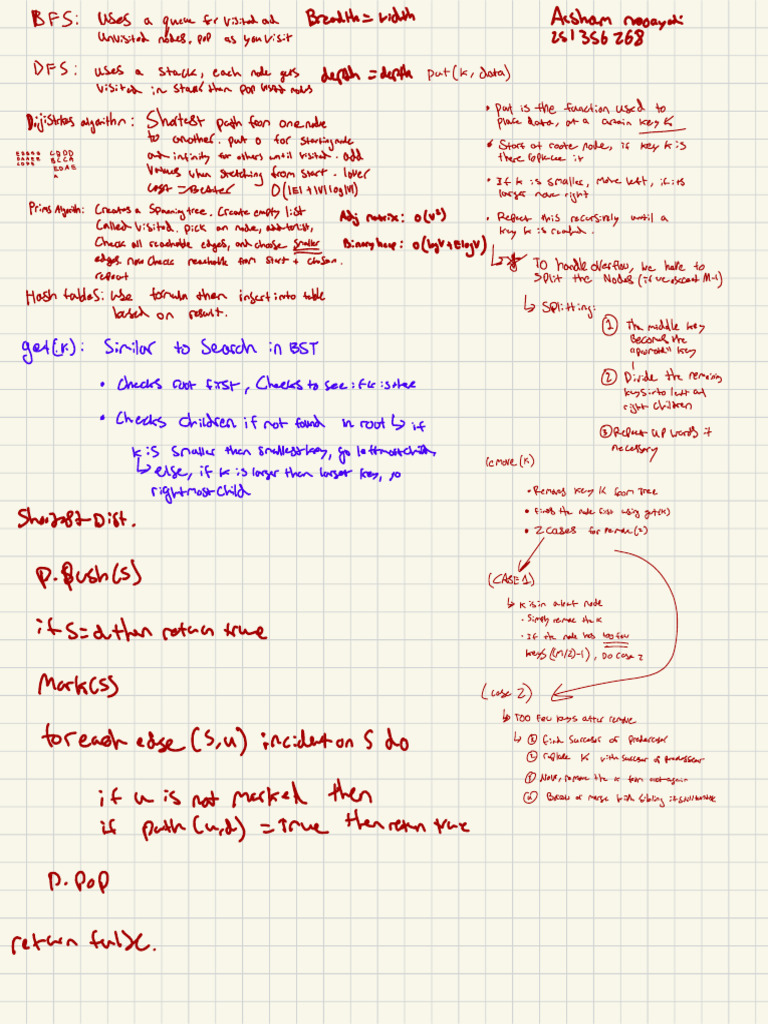 BFS: Uses a queue for visited and
unvisited nodes, pop as you visit
Breadth = width
DFS: uses a stack, each node gets
visited in stack then pop visited nodes
depth = depth
Dijistktras algorithm: Shortest path from one node
to another. put 0 for starting node
and infinity for others until visited. add
values when stretching from start. lower
cost = Better O(|E|+|V|log|V|)
Prims Algorith: Creates a Spanning tree. Create empty list
called visited. pick on node, add to list,
Check all reachable edges, and choose smaller
edges. now check reachable from start + chosen.
repeat
Adj matrix: O(V²)
Binary heap: O(logV+ElogV)
Hash tables: use formula then insert into table
based on result.
get(k): Similar to Search in BST
• Checks root first, Checks to see if k is there
• Checks children if not found in root ↳ if
k is smaller than smallest key, go leftmost child
↳ else, if k is larger than largest key, go
rightmost child
Shortest Dist.
p.push(s)
if s=d then return true
Mark(s)
for each edge (s,u) incident on s do
if u is not marked then
if path(u,d) = True then return true
p.pop
return false.
251356268
put(k, data)
• put is the function used to
place data, at a certain key K
• Start at roote node, if key k is
there replace it
• If k is smaller, move left, if its
larger move right
• Repeat this recursively until a
key k is reached.
↳ To handle overflow, we have to
split the Nodes (if we exceed M-1)
↳ Splitting:
① The middle key
Becomes the
"promote" key
② Divide the remaining
keys into left and
right children
③ Repeat upwards if
necessary
remove(k)
• Removes key K from tree
• finds the node first using get(k)
• 2 cases for remove(2)
(CASE 1)
↳ k is in a leaf node
• Simply remove the k
• If the node has too few
keys ((M/2)-1), Do case 2
(case 2)
↳ Too few keys after remove
↳ ① find successor of predecessor
② replace k with successor of predecessor
③ Now, remove the k from again
④ Borrow or merge with sibling if